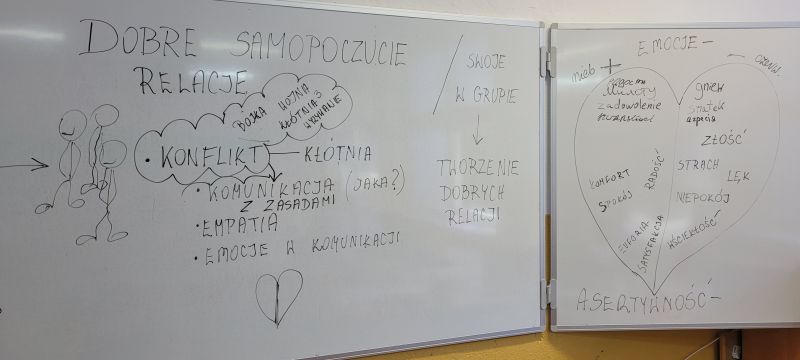 DOBRE SAMOPOCZUCIE
RELACJE
BÓJKA WOJNA
KŁÓTNIA
WYZYWANIE
• KONFLIKT — KŁÓTNIA
• KOMUNIKACJA (JAKA?)
Z ZASADAMI
• EMPATIA
• EMOCJE W KOMUNIKACJI
/ SWOJE
W GRUPIE
TWORZENIE
DOBRYCH
RELACJI
EMOCJE –
nieb +
miłość
zadowolenie
KOMFORT
SPOKÓJ
RADOŚĆ
EUFORIA
SATYSFAKCJA
gniew
smutek
ZŁOŚĆ
STRACH
LĘK
NIEPOKÓJ
WŚCIEKŁOŚĆ
ASERTYWNOŚĆ –